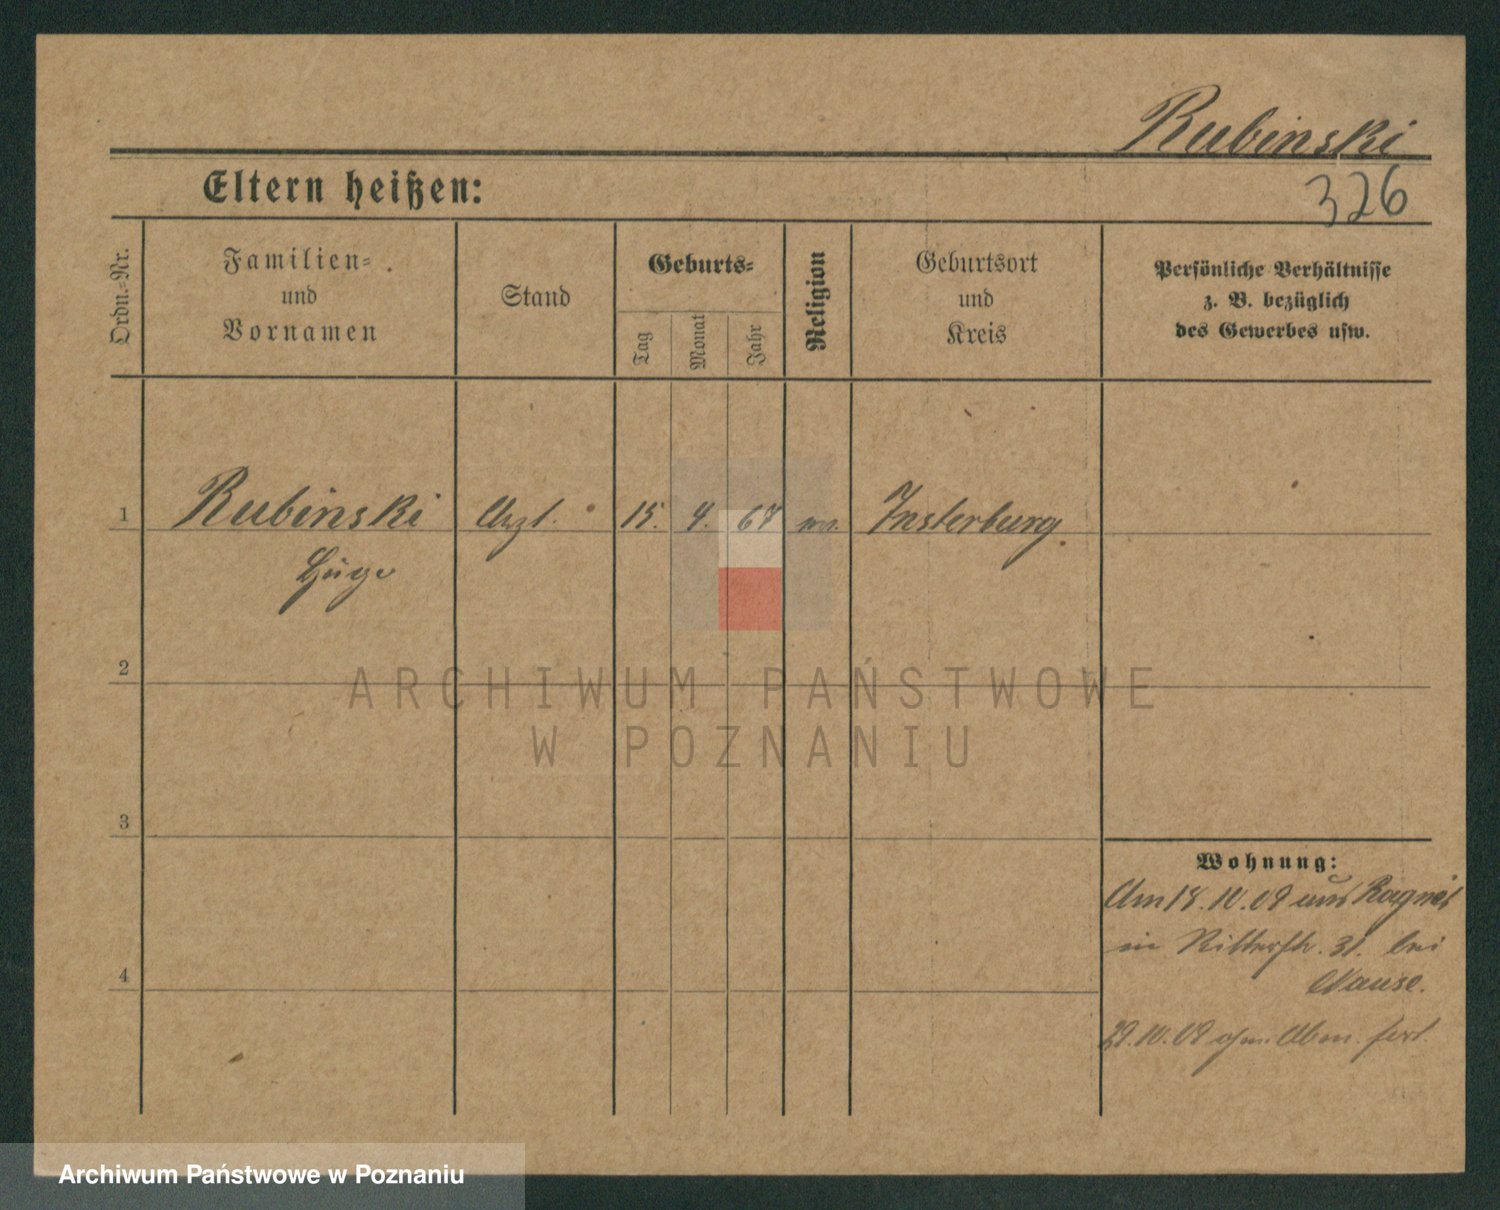 Rubinski
326
Eltern heißen:
Ordn.-Nr.
Familien- und Vornamen
Stand
Geburts-
Tag
Monat
Jahr
Religion
Geburtsort und Kreis
Persönliche Verhältnisse
z. B. bezüglich
des Gewerbes usw.
1 Rubinski Arzt. 15. 4. 67 Insterburg.
2
3
4
Wohnung:
Am 18.10.09 aus Ragnit
in Ritterstr. 31. bei
29.10.09 ohne Abm. fort.
ARCHIWUM PAŃSTWOWE
W POZNANIU
Archiwum Państwowe w Poznaniu